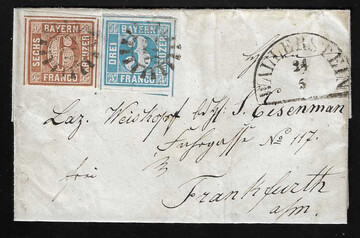 BAYERN
SECHS KREUZER
6
FRANCO
BAYERN
DREI KREUZER
3
FRANCO
WALLERSTEIN
24
5
Laz. Weiskopf bzhl. S. Eisenman
Fuhrgasse No 117.
frei
Frankfurth
a/m.